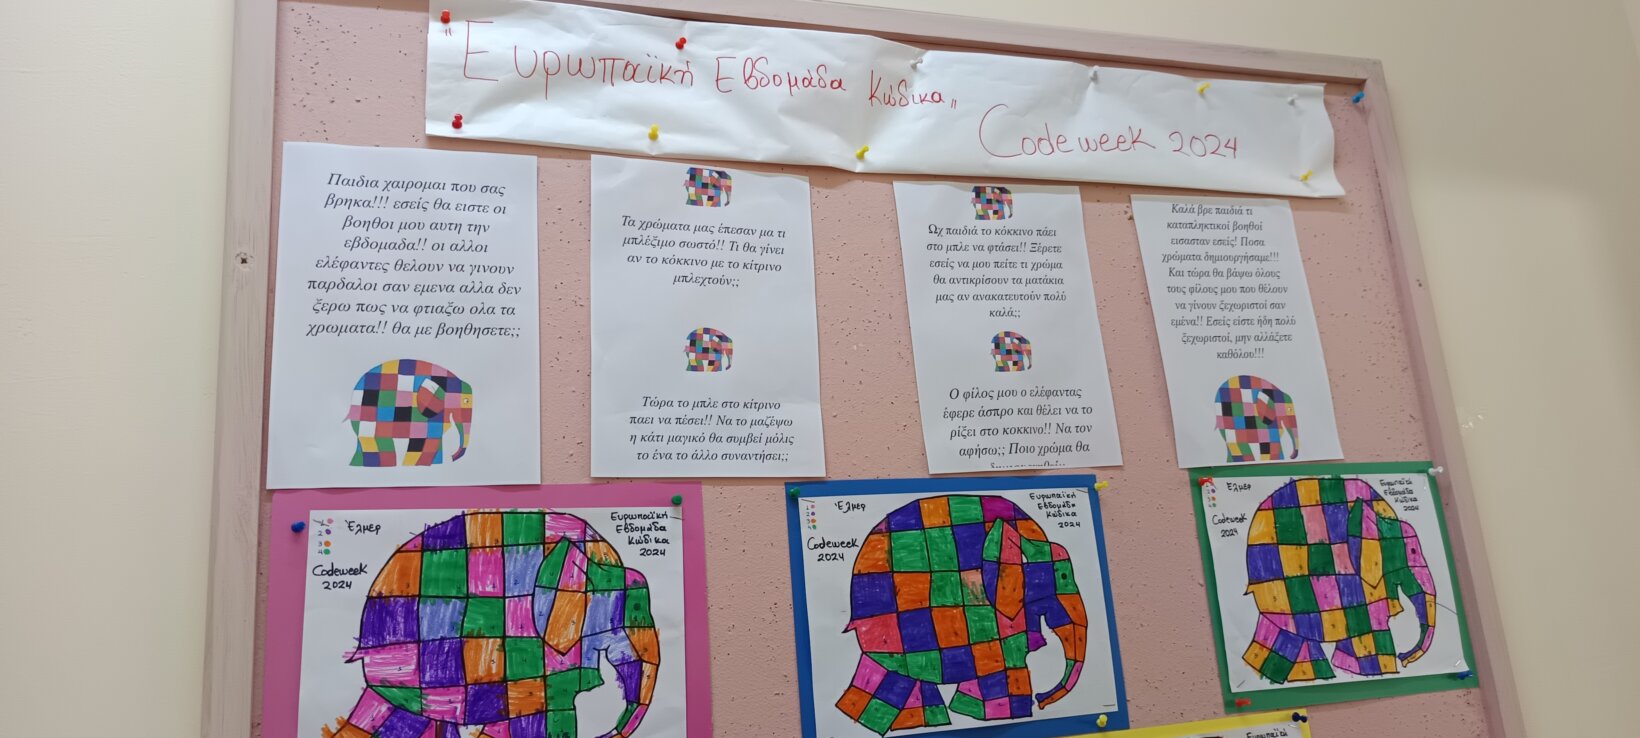 "Ευρωπαϊκή Εβδομάδα Κώδικα" Codeweek 2024
Παιδια χαιρομαι που σας
βρηκα!!! εσείς θα ειστε οι
βοηθοι μου αυτη την
εβδομαδα!! οι αλλοι
ελέφαντες θελουν να γινουν
παρδαλοι σαν εμενα αλλα δεν
ξερω πως να φτιαξω ολα τα
χρωματα!! θα με βοηθησετε;;
Τα χρώματα μας έπεσαν μα τι
μπλέξιμο σωστό!! Τι θα γίνει
αν το κόκκινο με το κίτρινο
μπλεχτούν;;
Τώρα το μπλε στο κίτρινο
παει να πέσει!! Να το μαζέψω
η κάτι μαγικό θα συμβεί μόλις
το ένα το άλλο συναντήσει;;
Ωχ παιδιά το κόκκινο πάει
στο μπλε να φτάσει!! Ξέρετε
εσείς να μου πείτε τι χρώμα
θα αντικρίσουν τα ματάκια
μας αν ανακατευτούν πολύ
καλά;;
Ο φίλος μου ο ελέφαντας
έφερε άσπρο και θέλει να το
ρίξει στο κοκκινο!! Να τον
αφήσω;; Ποιο χρώμα θα
Καλά βρε παιδιά τι
καταπληκτικοί βοηθοί
εισασταν εσείς! Ποσα
χρώματα δημιουργήσαμε!!!
Και τώρα θα βάψω όλους
τους φίλους μου που θέλουν
να γίνουν ξεχωριστοί σαν
εμένα!! Εσείς είστε ήδη πολύ
ξεχωριστοί, μην αλλάξετε
καθόλου!!!
Έλμερ
Codeweek
2024
Ευρωπαϊκή
Εβδομάδα
Κώδικα
2024
Έλμερ
Codeweek
2024
Ευρωπαϊκή
Εβδομάδα
Κώδικα
2024
Έλμερ
Codeweek
2024
Ευρωπαϊκή
Εβδομάδα
Κώδικα
2024
Ευρωπαϊκή